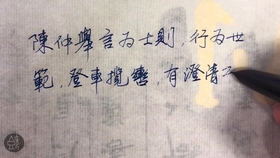 陳仲舉言为士則，行为世
範，登車攬轡，有澄清